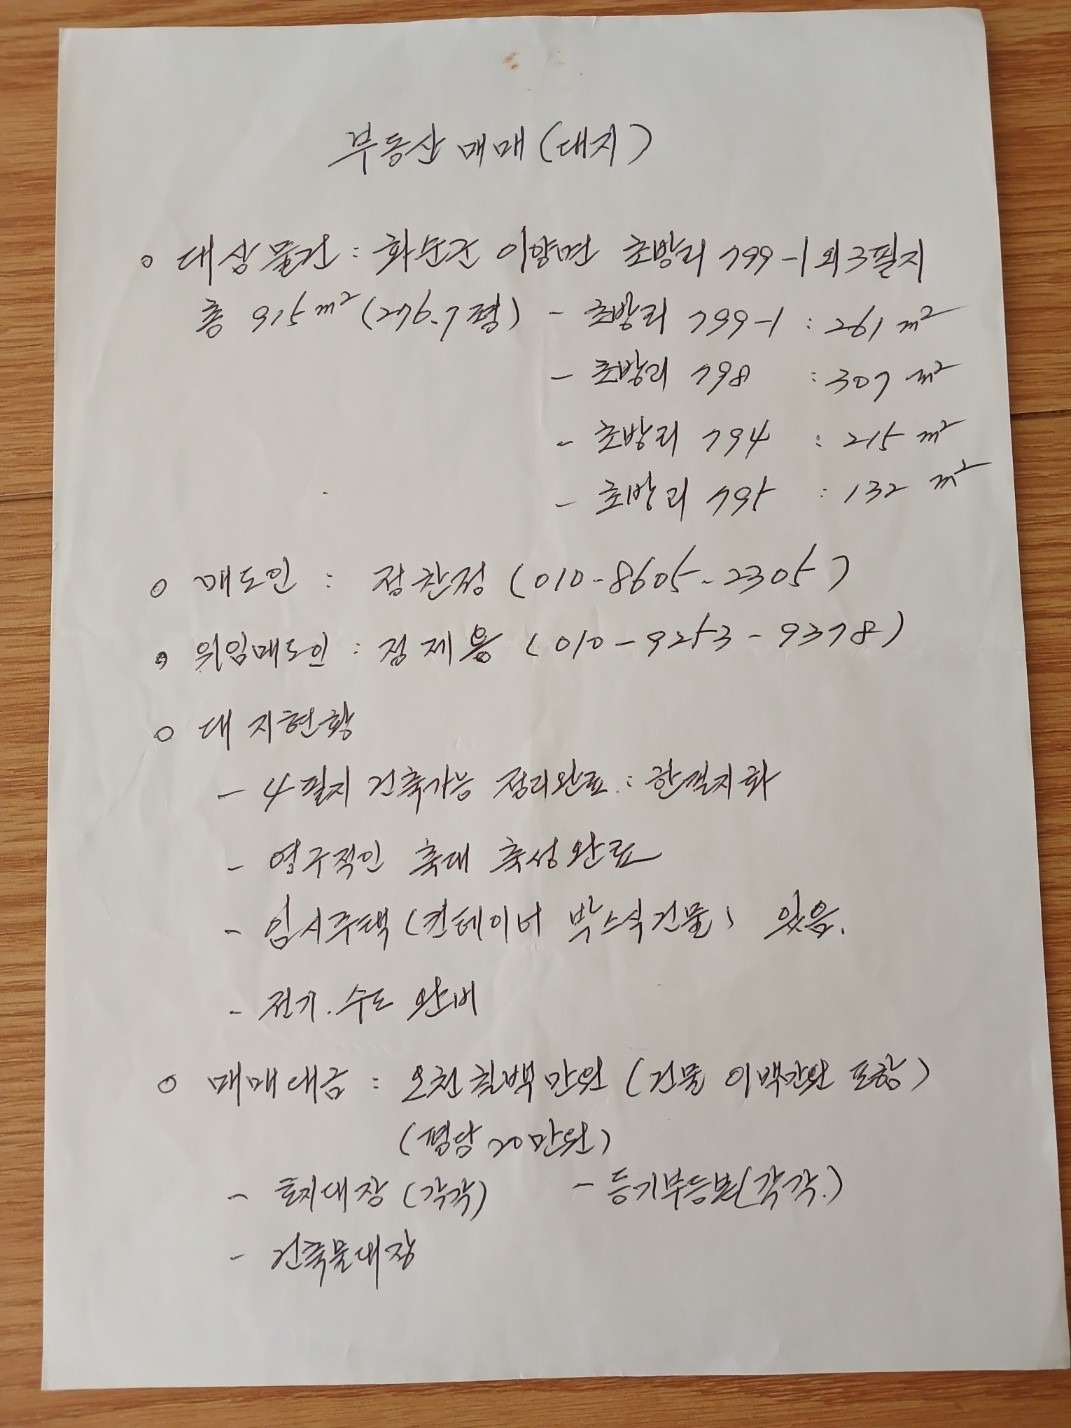 부동산 매매 (대지)
○ 대상물건 : 화순군 이양면 초방리 799-1 외 3필지
총 915㎡ (276.7평) - 초방리 799-1 : 261㎡
- 초방리 798 : 307㎡
- 초방리 794 : 215㎡
- 초방리 795 : 132㎡
○ 매도인 : 정찬정 (010-8605-2305)
○ 위임매도인 : 정제용 (010-9253-9378)
○ 대지현황
- 4필지 건축가능 정리완료 : 한필지화
- 영구적인 축대 축성완료
- 임시주택 (컨테이너 박스식 건물) 있음.
- 전기.수도 완비
○ 매매대금 : 오천칠백만원 (건물 이백만원 포함)
(평당 20만원)
- 토지대장 (각각) - 등기부등본 (각각.)
- 건축물대장